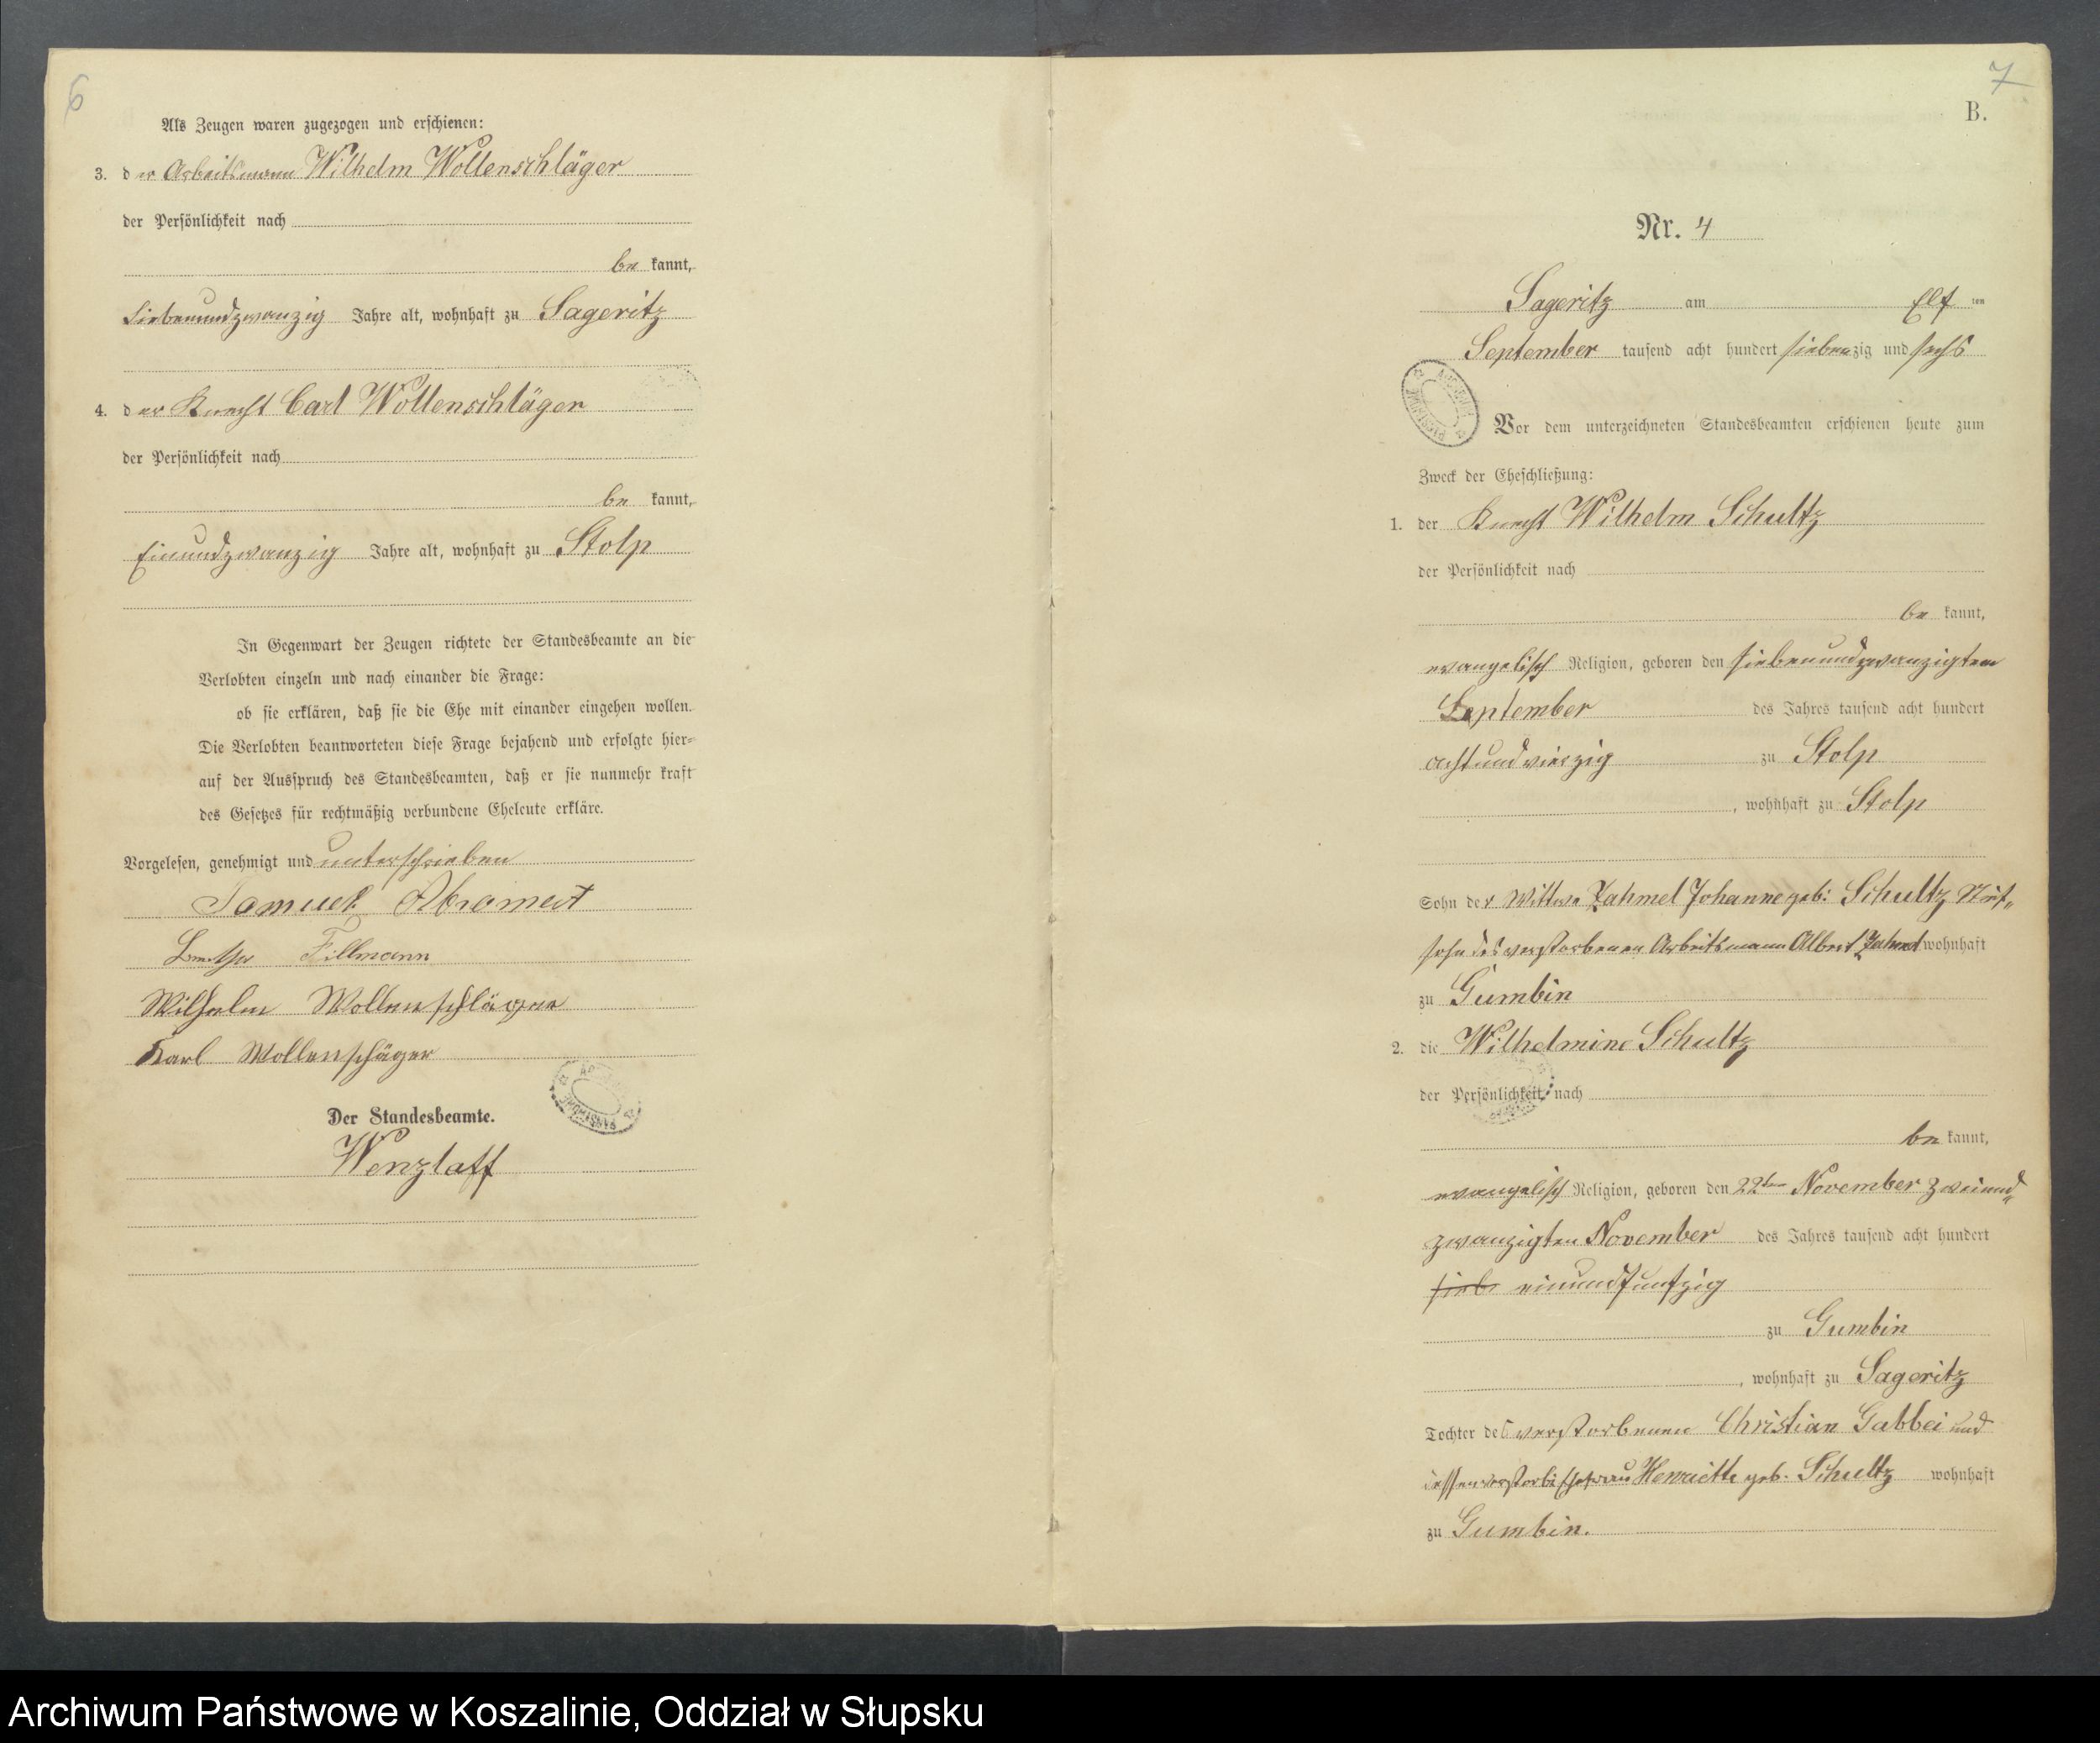 6
Als Zeugen waren zugezogen und erschienen:
3. der Arbeitsmann Wilhelm Wollenschläger
der Persönlichkeit nach
be kannt,
siebenundzwanzig Jahre alt, wohnhaft zu Sageritz
4. der Knecht Carl Wollenschläger
der Persönlichkeit nach
be kannt,
Einundzwanzig Jahre alt, wohnhaft zu Stolp
In Gegenwart der Zeugen richtete der Standesbeamte an die
Verlobten einzeln und nach einander die Frage:
ob sie erklären, daß sie die Ehe mit einander eingehen wollen.
Die Verlobten beantworteten diese Frage bejahend und erfolgte hier-
auf der Ausspruch des Standesbeamten, daß er sie nunmehr kraft
des Gesetzes für rechtmäßig verbundene Eheleute erkläre.
Vorgelesen, genehmigt und unterschrieben
Samuel
Fillmann
Wilhelm Wollenschläger
Karl Wollenschäger
Der Standesbeamte.
Wenzlaff
7
B.
Nr. 4
Sageritz am Elf ten
September tausend acht hundert siebenzig und sechs
Vor dem unterzeichneten Standesbeamten erschienen heute zum
Zweck der Eheschließung:
1. der Knecht Wilhelm Schultz
der Persönlichkeit nach
be kannt,
evangelisch Religion, geboren den siebenundzwanzigten
September des Jahres tausend acht hundert
achtundvierzig zu Stolp
, wohnhaft zu Stolp
Sohn der Wittwe Zahmel Johanne geb: Schultz
sohn des verstorbenen Arbeitsmann Albert Zahmel wohnhaft
zu Gumbin
2. die Wilhelmine Schultz
der Persönlichkeit nach
be kannt,
evangelisch Religion, geboren den 22ten November zweiund„
zwanzigten November des Jahres tausend acht hundert
sieb einundfunfzig
zu Gumbin
, wohnhaft zu Sageritz
Tochter des verstorbenen Christian Gabbei und
dessen verstorb: Ehefrau Henriette geb. Schultz wohnhaft
zu Gumbin.
Archiwum Państwowe w Koszalinie, Oddział w Słupsku